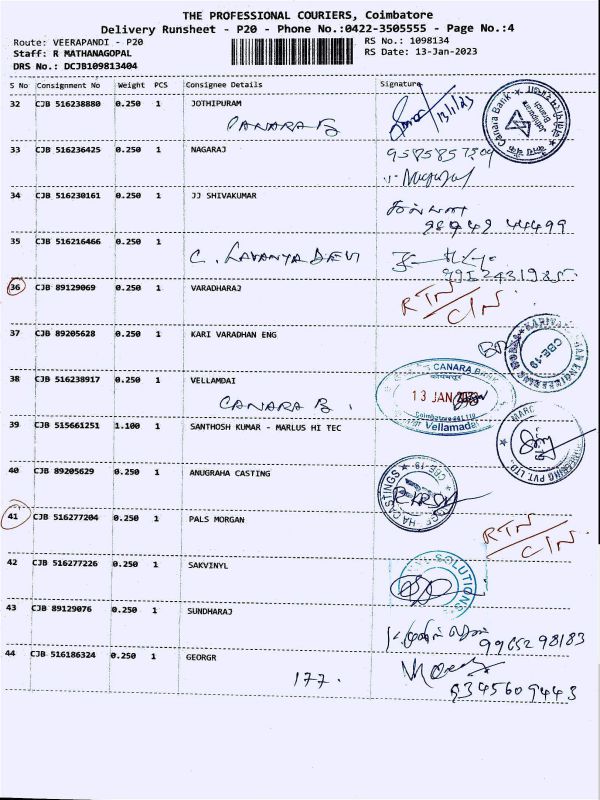 THE PROFESSIONAL COURIERS, Coimbatore
Delivery Runsheet - P20 - Phone No.:0422-3505555 - Page No.:4
Route: VEERAPANDI - P20 RS No.: 1098134
Staff: R MATHANAGOPAL RS Date: 13-Jan-2023
DRS No.: DCJB109813404
S No Consignment No Weight PCS Consignee Details Signature
32 CJB 516238880 0.250 1 JOTHIPURAM 13/1/23
CANARA B Canara Bank Jothipuram Branch
33 CJB 516236425 0.250 1 NAGARAJ
34 CJB 516230161 0.250 1 JJ SHIVAKUMAR
98942 44499
35 CJB 516216466 0.250 1
C. LAVANYA DEVI 9952431985
36 CJB 89129069 0.250 1 VARADHARAJ RTN
C/N
37 CJB 89205628 0.250 1 KARI VARADHAN ENG CBE-19
38 CJB 516238917 0.250 1 VELLAMDAI CANARA BANK
CANARA B. 13 JAN 2023
Vellamadai
39 CJB 515661251 1.100 1 SANTHOSH KUMAR - MARLUS HI TEC
40 CJB 89205629 0.250 1 ANUGRAHA CASTING CBE-19
41 CJB 516277204 0.250 1 PALS MORGAN RTN
C/N
42 CJB 516277226 0.250 1 SAKVINYL SOLUTIONS
43 CJB 89129076 0.250 1 SUNDHARAJ
9965298183
44 CJB 516186324 0.250 1 GEORGR
177. 9345609443